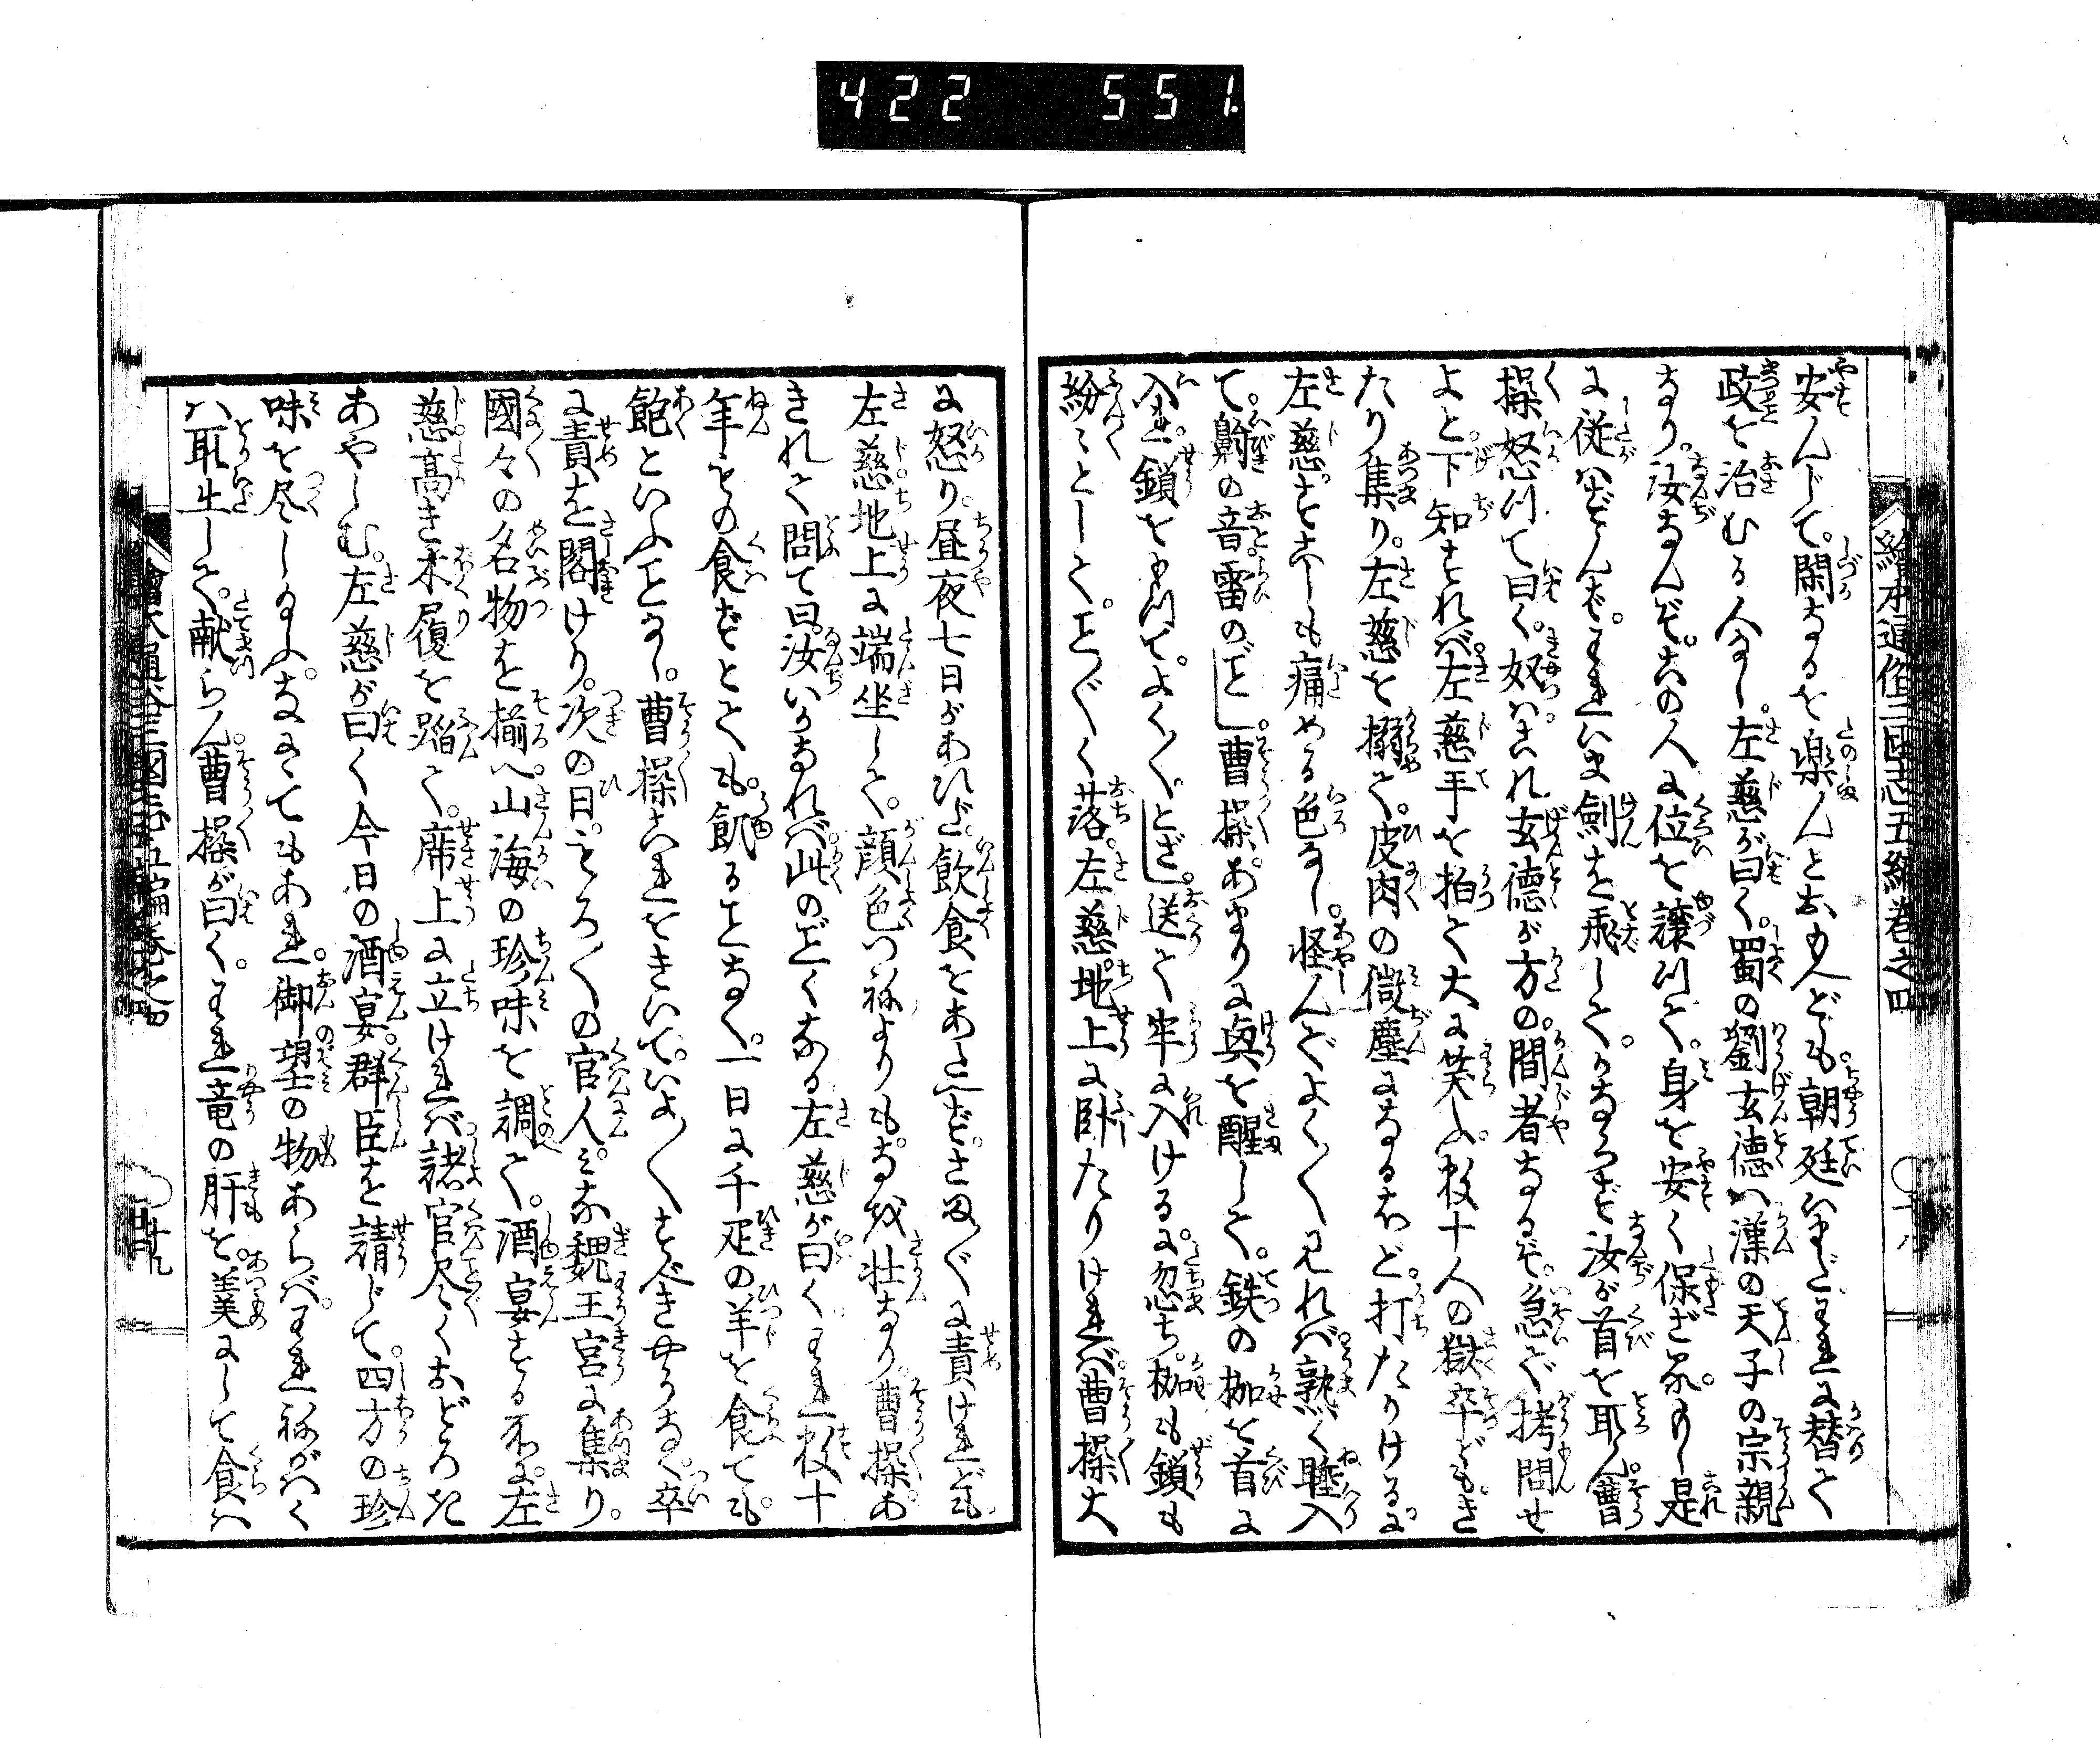 422 551.
繪本通俗三國志五編卷之四
安んじて。閑なるを楽んとおもへども。朝廷いまだわれに替て
政を治むる人なし。左慈が曰く。蜀の劉玄徳ハ漢の天子の宗親
なり。汝なんぞ。この人に位を譲りて。身を安く保ざる。もし是
に従ハずんば。われいま劍を飛して。かならず汝が首を取ん曹
操怒つて曰く。奴ハこれ玄徳が方の。間者なるぞ。急ぎ拷問せ
よと。下知すれバ。左慈手を拍て大に笑ふ。数十人の獄卒どもき
たり集り。左慈を搦て。皮肉の微塵になるほど。打たりけるに。
左慈すこしも痛める色なし。怪んでよく〳〵見れバ熟く睡入
て。鼾の音。雷のごとし。曹操。あまりに興を醒して。鉄の枷を首に
入れ。鎖をもつて。よく〳〵とざし。送て牢に入けるに。忽ち。枷も鎖も
紛々として。こと〴〵く落。左慈。地上に卧たりけれバ。曹操大
に怒り。昼夜七日があひだ。飲食をあたへず。さま〴〵に責けれども。
左慈地上に端坐して。顔色つねよりも。なを壮なり。曹操あ
きれて問て曰。汝いかなれバ。此のごとくなる左慈が曰く。われ数十
年ものを食ずとても。飢ることなく。一日に千疋の羊を食ても。
飽といふことなし。曹操これをきいて。いよ〳〵すべきやうなく。卒
に責を閣けり。次の日。もろ〳〵の官人。みな魏王宮に集り。
國々の名物を揃へ。山海の珍味を調て。酒宴する所に。左
慈高き木履を踏て。席上に立けれバ。諸官尽くおどろき
あやしむ。左慈が曰く今日の酒宴。群臣を請じて。四方の珍
味を尽し給ふ。なにゝてもあれ。御望の物あらバ。われねがハく
ハ取出して。献らん。曹操が曰く。われ竜の肝を。羹にして食ハ
繪本通俗三國志五編卷之四 廿九